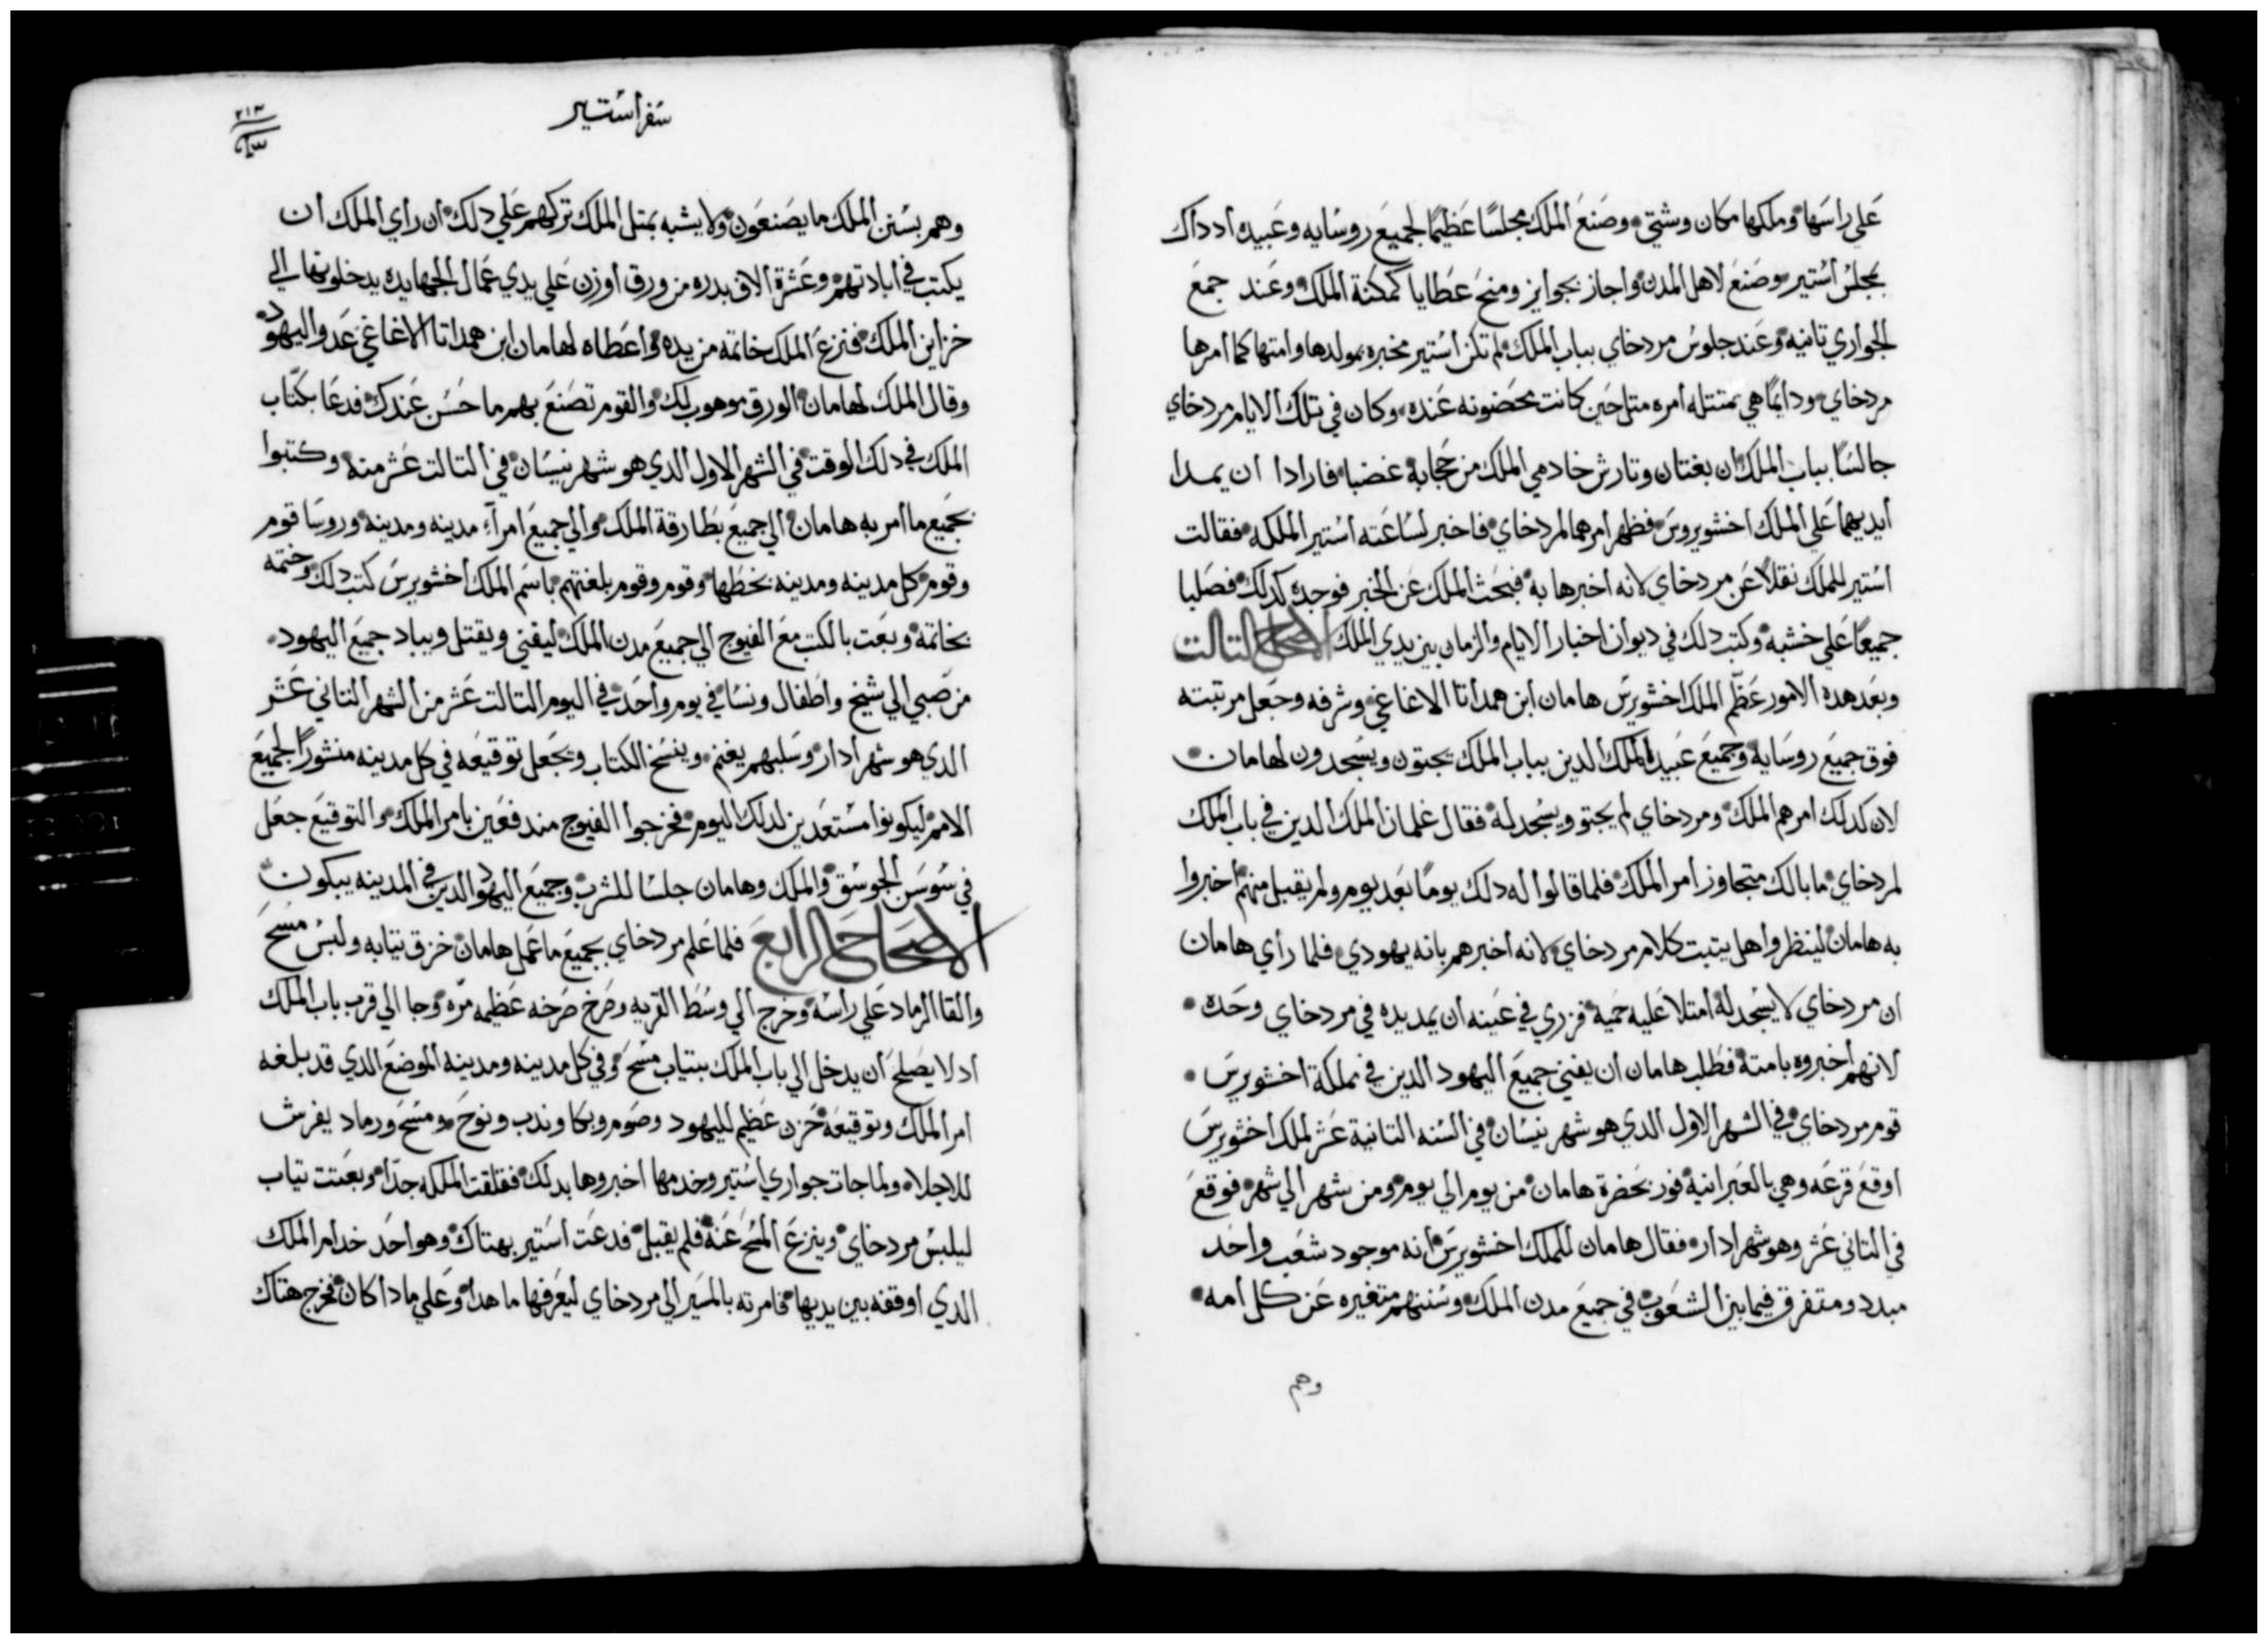 علي راسها وملكها مكان وشتي وصنع الملك مجلسًا عظيمًا لجميع روسايه وعبيده ادداك
بمجلس أستير وصنع لاهل المدن واجاز بجوايز ومنح عطايا كمكنة الملك وعند جمع
الجواري تانيه وعند جلوس مردخاي بباب الملك لم تكن أستير مخبره بمولدها وامتها كما أمرها
مردخاي ودايمًا هي ممتتله أمره متل حين كانت محضونه عنده وكان في تلك الايام مردخاي
جالسًا بباب الملك ان بغتان وتارش خادمي الملك من حجابه غضبا فارادا ان يمدا
أيديهما علي الملك اخشويروس فظهر أمرهما لمردخاي فاخبر لساعته أستير الملكه فقالت
استير للملك نقلاً عن مردخاي لانه أخبرها به فبحث الملك عن الخبر فوجده كدلك فصلبا
جميعًا علي خشبه وكتب دلك في ديوان اخبار الايام والزمان بين يدي الملك الاصحاح التالت
وبعد هده الامور عظّم الملك اخشويرس هامان أبن همداتا الاغاغي وشرفه وجعل مرتبته
فوق جميع روسايه وجميع عبيد الملك الدين بباب الملك يجتون ويسجدون لهامان
لان كدلك امرهم الملك ومردخاي لم يجتو ويسجد له فقال غلمان الملك الدين في باب الملك
لمردخاي ما بالك متجاوز أمر الملك فلما قالوا له دلك يومًا بعد يوم ولم يقبل منهم أخبروا
به هامان لينظروا هل يتبت كلام مردخاي لانه أخبرهم بانه يهودي فلما رأي هامان
ان مردخاي لا يسجد له أمتلا عليه حمية فزري في عينه ان يمد يده في مردخاي وحده
لانهم أخبروه بامته فطلب هامان ان يفني جميع اليهود الدين في مملكة اخشويرس
قوم مردخاي في الشهر الاول الدي هو شهر نيسان في السنه التانية عشر لملك اخشويرس
اوقع قرعه وهي بالعبرانية فور بحضرة هامان من يوم الي يوم ومن شهر الي شهر فوقع
في التاني عشر وهو شهر ادار فقال هامان للملك اخشويرس انه موجود شعب واحد
مبدد ومتفرق فيما بين الشعوب في جميع مدن الملك وسننهم متغيره عن كل أمه
وهم
سفر أستير
٢١٣
وهم بسنن الملك ما يصنعون ولا يشبه بمتل الملك تركهم علي دلك ان رأي الملك ان
يكتب في أبادتهم وعشرة الاف بدره من ورق أوزن علي يدي عمال الجهابده يدخلونها الي
خزاين الملك فنزع الملك خاتمه من يده وأعطاه لهامان ابن همداتا الاغاغي عدو اليهود
وقال الملك لهامان الورق موهوب لك والقوم تصنع بهم ما حسن عندك فدعا بكتّاب
الملك في دلك الوقت في الشهر الاول الدي هو شهر نيسان في التالت عشر منه وكتبوا
بجميع ما أمر به هامان الي جميع بطارقة الملك والي جميع امرآء مدينه ومدينه وروسا قوم
وقوم كل مدينه ومدينه بخطها وقوم وقوم بلغتهم باسم الملك أخشويرس كتب دلك وختمه
بخاتمه وبعت بالكتب مع الفيوج الي جميع مدن الملك ليفني ويقتل ويباد جميع اليهود
من صبي الي شيخ واطفال ونسا في يوم واحد في اليوم التالت عشر من الشهر التاني عشر
الدي هو شهر أدار وسلبهم يغنم وينسخ الكتاب ويجعل توقيعه في كل مدينه منشورًا لجميع
الامم ليكونوا مستعدين لدلك اليوم فخرجوا الفيوج مندفعين بامر الملك والتوقيع جعل
في سوسن الجوسق والملك وهامان جلسا للشرب وجميع اليهود الدين في المدينه يبكون
الاصحاح الرابع فلما علم مردخاي بجميع ما عمل هامان خزق تيابه ولبس مسح
والقا الرماد علي رأسه وخرج الي وسط القريه وصرخ صرخه عظيمه مرّه وجا الي قرب باب الملك
اد لا يصلح أن يدخل الي باب الملك بتياب مسح وفي كل مدينه ومدينه الموضع الدي قد بلغه
امر الملك وتوقيعه حزن عظيم لليهود وصوم وبكا وندب ونوح ومسح ورماد يفرش
للاجلاء ولما جات جواري أستير وخدمها اخبروها بدلك فقلقت الملكه جدّا وبعتت تياب
ليلبس مردخاي وينزع المسح عنه فلم يقبل فدعت استير بهتاك وهو احد خدام الملك
الدي اوقفه بين يديها فامرته بالمسير الي مردخاي ليعرفها ما هدا وعلي مادا كان فخرج هتاك